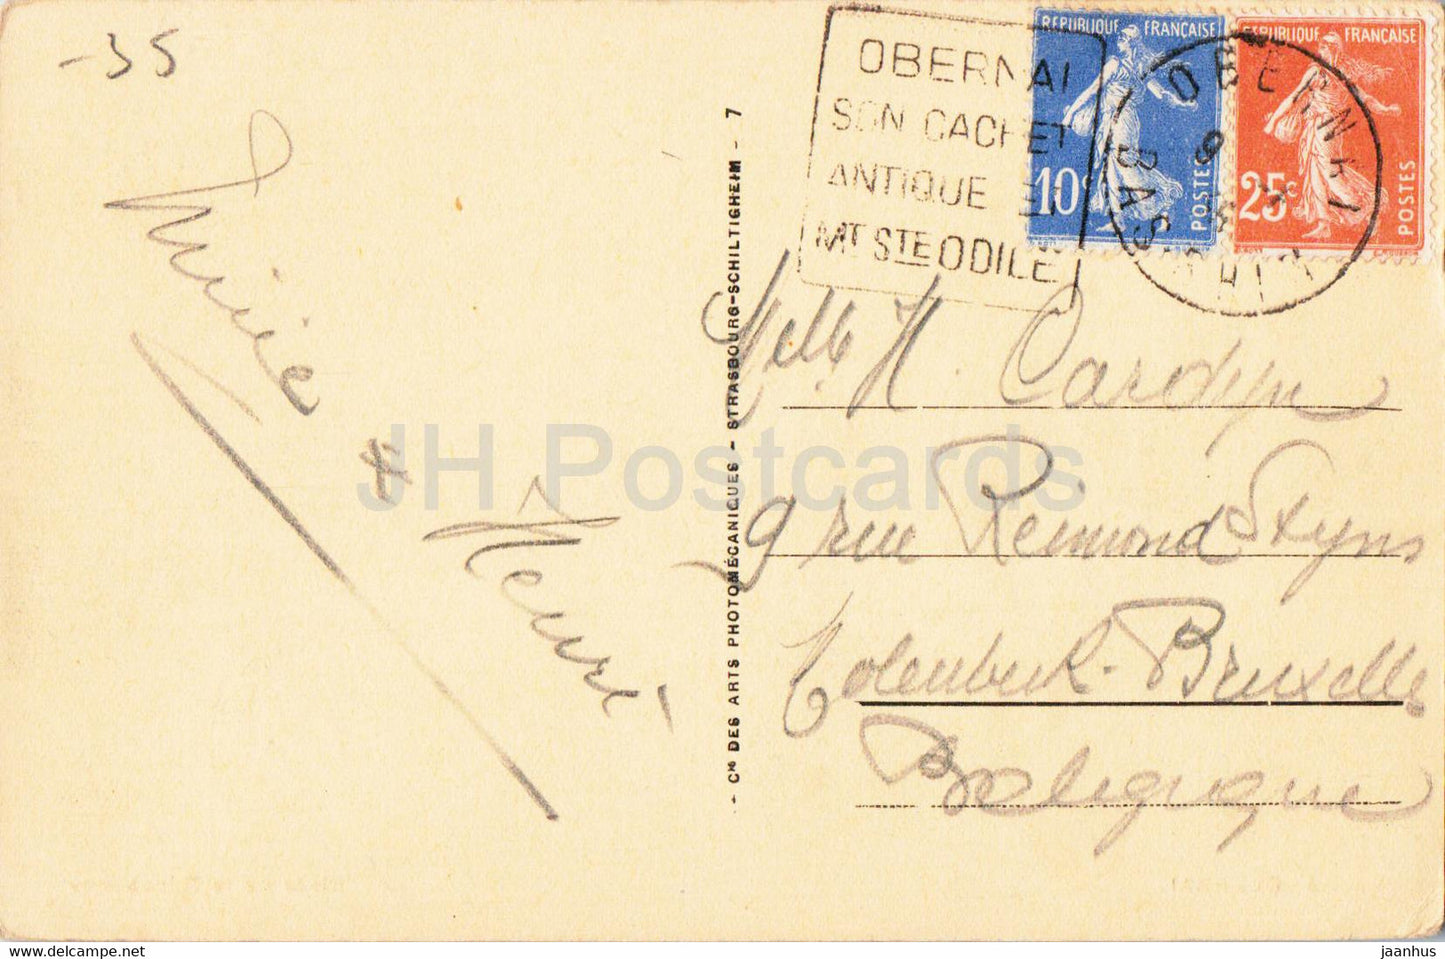 -35
OBERNAI
SON CACHET
ANTIQUE ET
MT STE ODILE
REPUBLIQUE FRANÇAISE
10c
POSTES
REPUBLIQUE FRANÇAISE
25c
POSTES
OBERNAI
BAS RHIN
9
- Cie DES ARTS PHOTOMÉCANIQUES - STRASBOURG-SCHILTIGHEIM - 7
Melle H. Cardyn
9 rue Reimond Styns
Molenbeek-Bruxelles
Belgique
JH Postcards
https://www.delcampe.net
jaanhus